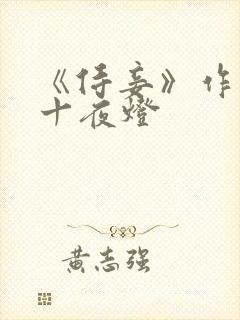 《侍妾》作
十夜燈
黄志强